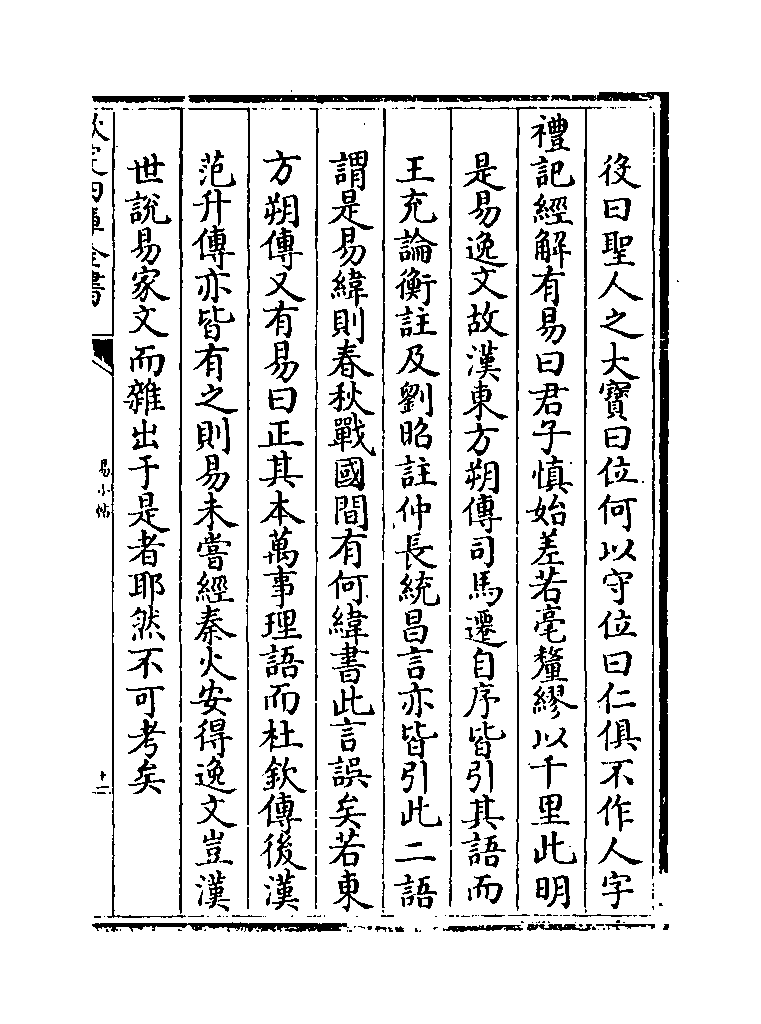 後曰聖人之大寶曰位何以守位曰仁俱不作人字
禮記經解有易曰君子慎始差若毫釐繆以千里此明
是易逸文故漢東方朔傳司馬遷自序皆引其語而
王充論衡註及劉昭註仲長統昌言亦皆引此二語
謂是易緯則春秋戰國間有何緯書此言誤矣若東
方朔傳又有易曰正其本萬事理語而杜欽傳後漢
范升傳亦皆有之則易未嘗經秦火安得逸文豈漢
世說易家文而雜出于是者耶然不可考矣
欽定四庫全書
易小帖
十二